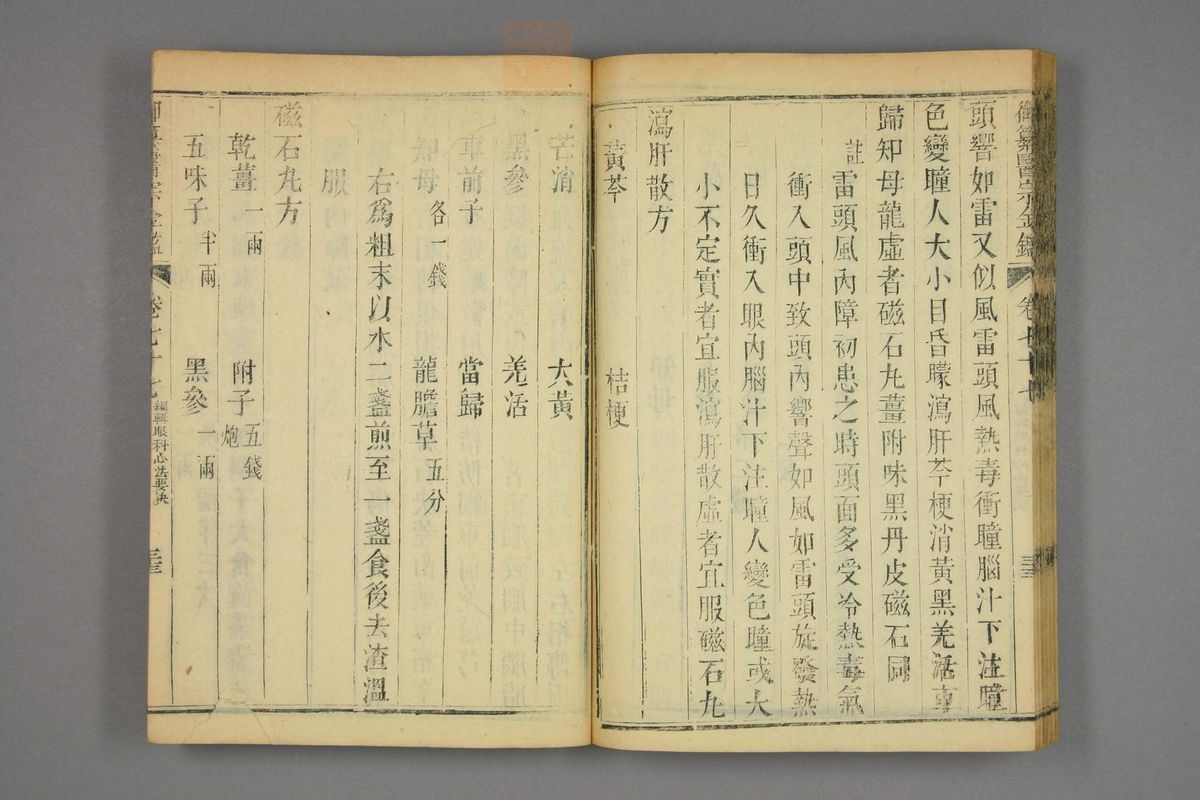 御纂醫宗金鑑 卷七十七 三十三
頭響如雷又似風雷頭風熱毒衝瞳腦汁下注瞳
色變瞳人大小目昏矇瀉肝芩梗消黃黑羌活車
歸知母龍虛者磁石丸薑附味黑丹皮磁石同
註雷頭風內障初患之時頭面多受冷熱毒氣
衝入頭中致頭內響聲如風如雷頭旋發熱
日久衝入眼內腦汁下注瞳人變色瞳或大
小不定實者宜服瀉肝散虛者宜服磁石丸
瀉肝散方
黃芩 桔梗
芒消 大黃
黑參 羌活
車前子 當歸
知母各一錢 龍膽草五分
右爲粗末以水二盞煎至一盞食後去渣溫
服
磁石丸方
乾薑一兩 附子炮五錢
五味子半兩 黑參一兩
御纂醫宗金鑑 卷七十七 編輯眼科心法要訣 三十三